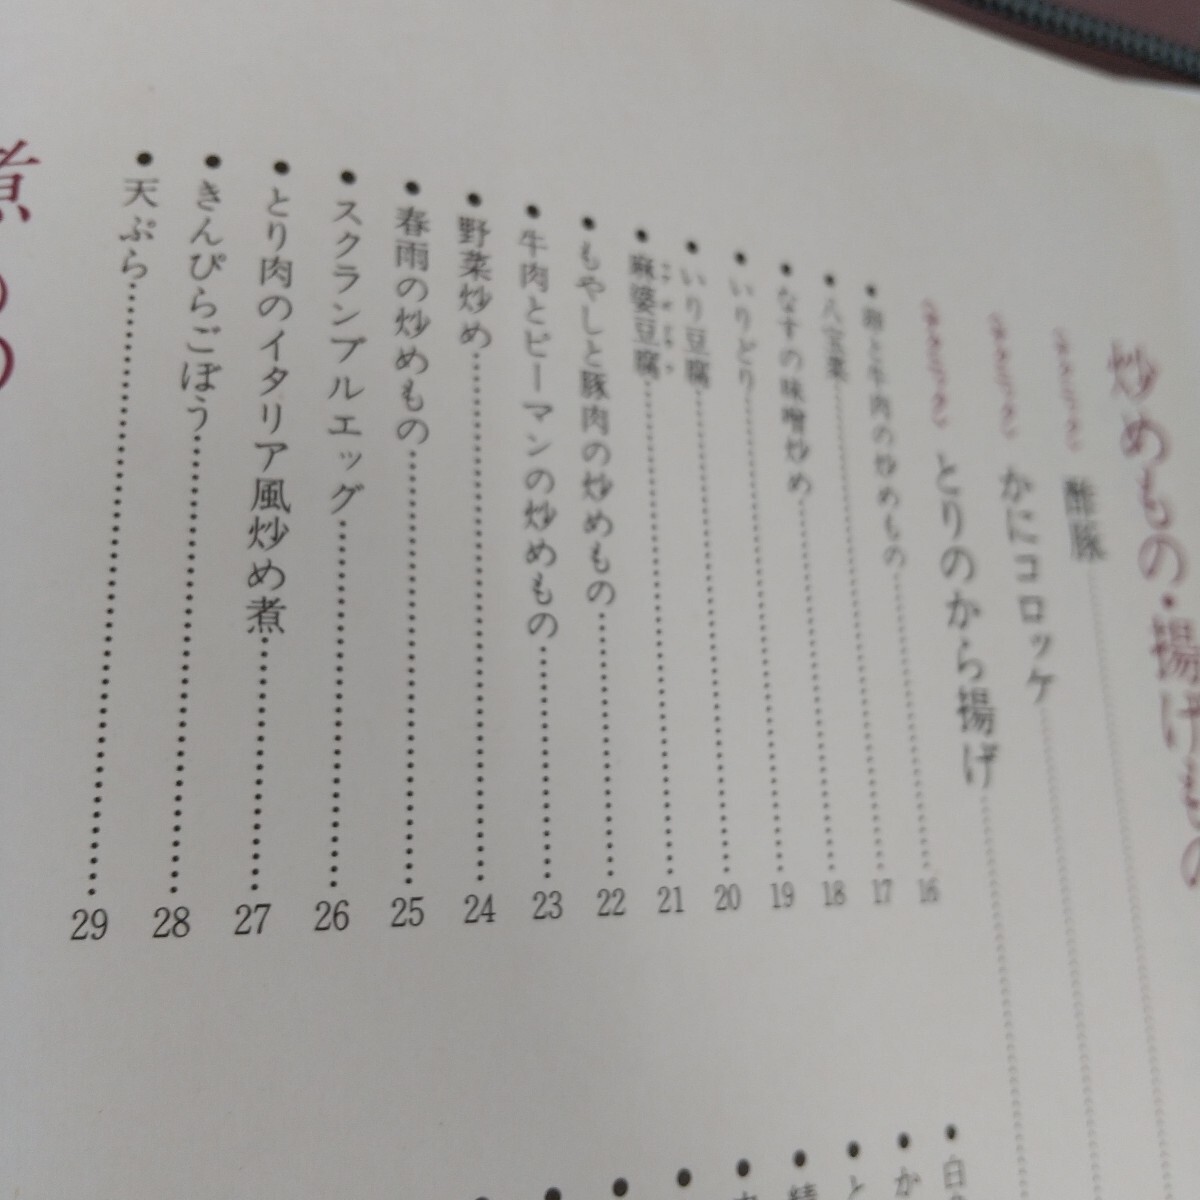 炒めもの・揚げもの
酢豚
かにコロッケ
とりのから揚げ
と牛肉の炒めもの 16
●八宝菜 17
●なすの味噌炒め 18
●いりどり 19
●いり豆腐 20
●麻婆豆腐 21
●もやしと豚肉の炒めもの 22
●牛肉とピーマンの炒めもの 23
●野菜炒め 24
●春雨の炒めもの 25
●スクランブルエッグ 26
●とり肉のイタリア風炒め煮 27
●きんぴらごぼう 28
●天ぷら 29
煮もの
●白
●か
●と